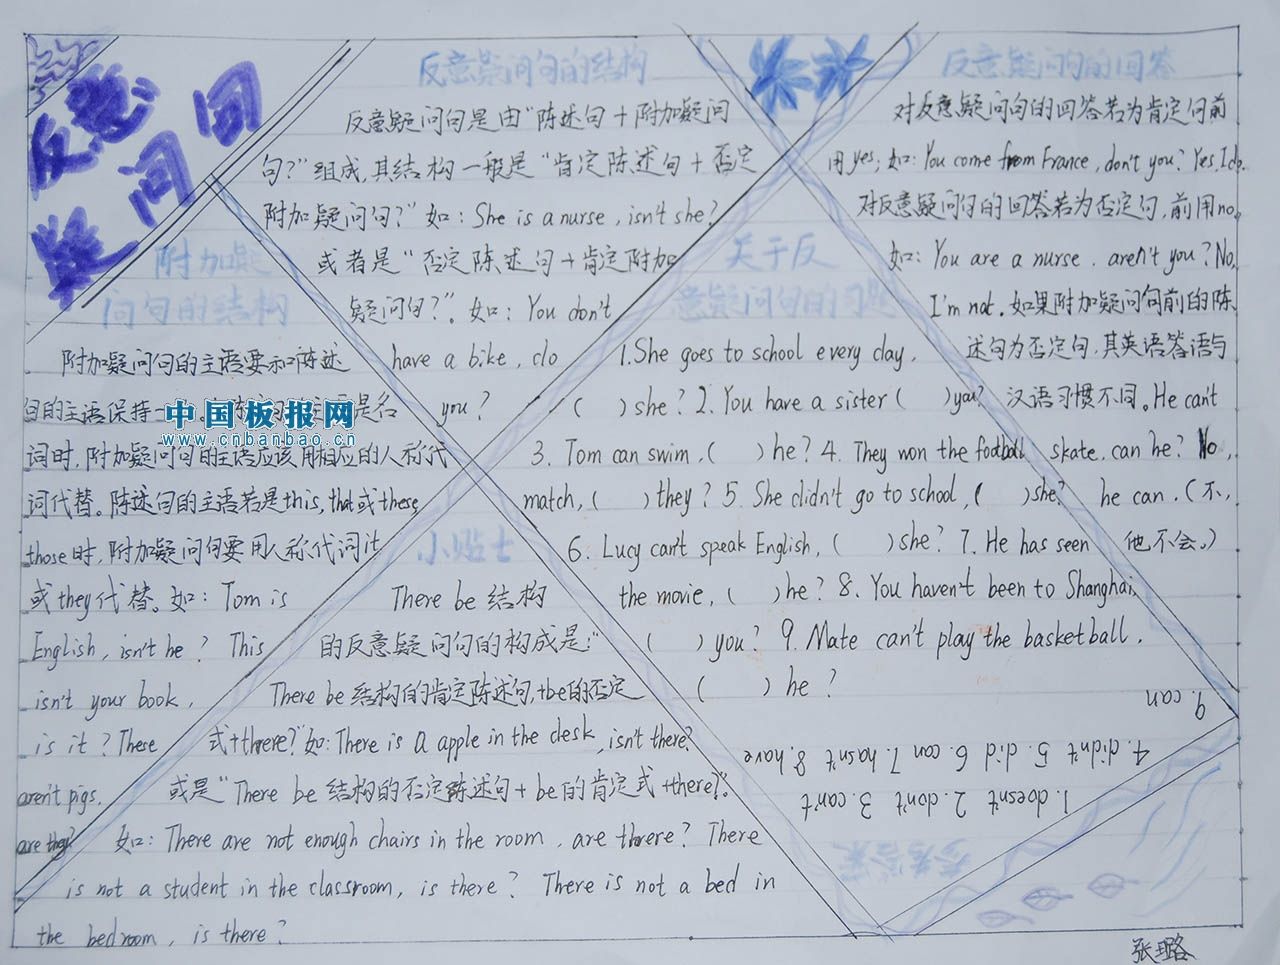 反意
疑问句
反意疑问句的结构
反意疑问句是由“陈述句+附加疑问
句?”组成,其结构一般是“肯定陈述句+否定
附加疑问句?”如: She is a nurse, isn't she?
或者是“否定陈述句+肯定附加
疑问句?”。如: You don't
have a bike, do
you?
附加疑
问句的结构
附加疑问句的主语要和陈述
句的主语保持一
是名
词时,附加疑问句的主语应该用相应的人称代
词代替。陈述句的主语若是this, that或these,
those时,附加疑问句要用人称代词it
或they代替。如: Tom is
English, isn't he? This
isn't your book,
is it? These
aren't pigs,
are they?
中国板报网
www.cnbanbao.cn
小贴士
There be 结构
的反意疑问句的构成是:“
There be 结构的肯定陈述句,+be的否定
式+three?”如: There is a apple in the desk, isn't there?
或是“There be 结构的否定陈述句+be的肯定式+there?”
如: There are not enough chairs in the room, are threre? There
is not a student in the classroom, is there? There is not a bed in
the bedroom, is there?
关于反
意疑问句的问题
1. She goes to school every day,
( )she? 2. You have a sister ( )you?
3. Tom can swim, ( )he? 4. They won the football
match, ( )they? 5. She didn't go to school, ( )she?
6. Lucy can't speak English, ( )she? 7. He has seen
the movie, ( )he? 8. You haven't been to Shanghai,
( )you? 9. Mate can't play the basketball,
( )he?
反意疑问句的回答
对反意疑问句的回答若为肯定句前
用yes; 如: You come from France, don't you? Yes, I do.
对反意疑问句的回答若为否定句,前用no。
如: You are a nurse, aren't you? No,
I'm not. 如果附加疑问句前的陈
述句为否定句,其英语答语与
汉语习惯不同。He can't
skate, can he? No,
he can. (不,
他不会。)
参考答案
1. doesn't 2. don't 3. can't
4. didn't 5. did 6. can 7. hasn't 8. have
9. can
张璐